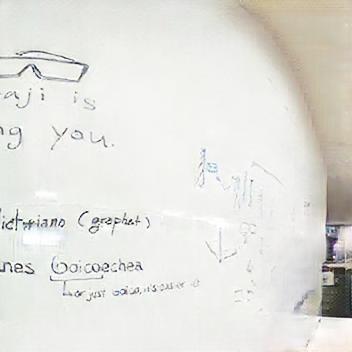 aji is
ng you.
ictoriano (graphet)
nes Goicoechea
or just Goico, it's easier